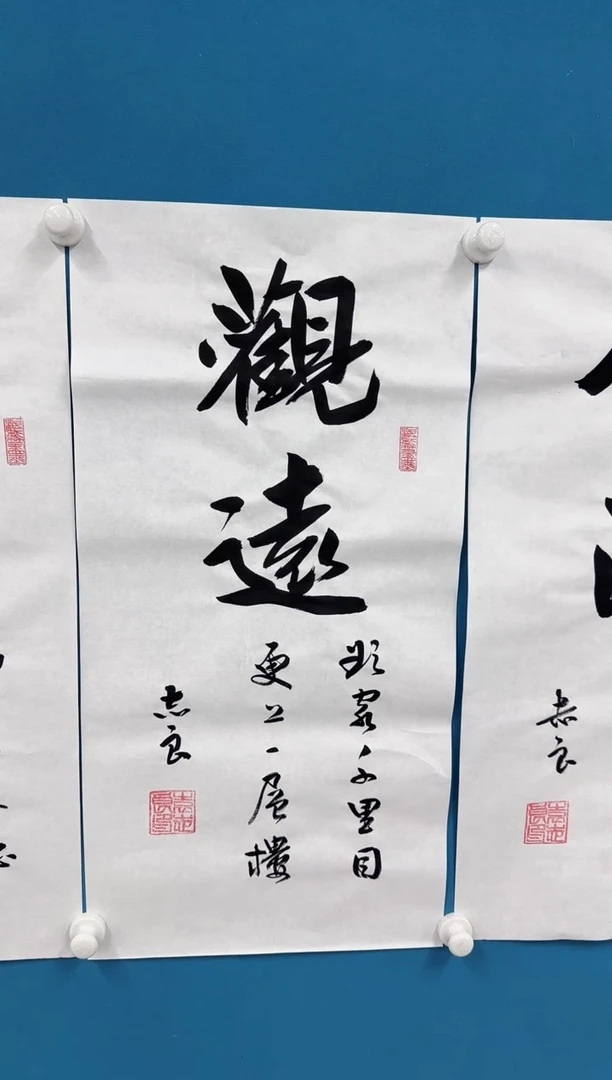 觀遠
欲窮千里目
更上一層樓
志良
志良